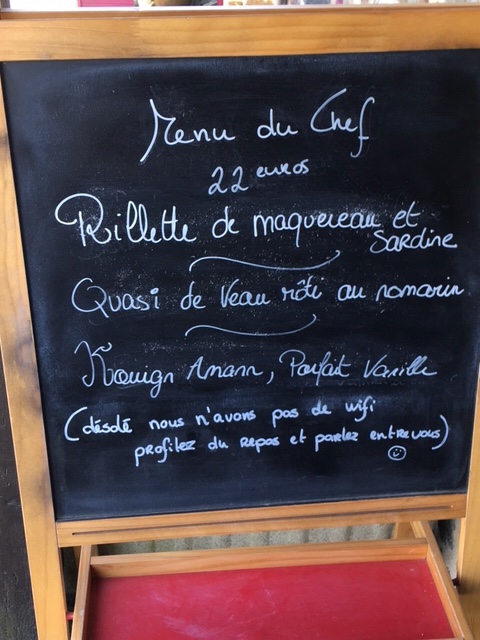 Menu du Chef
22 euros
Rillette de maquereau et
Sardine
Quasi de Veau rôti au romarin
Kouign Amann, Parfait Vanille
(désolé nous n'avons pas de wifi
profitez du repas et parlez entre vous)
☺